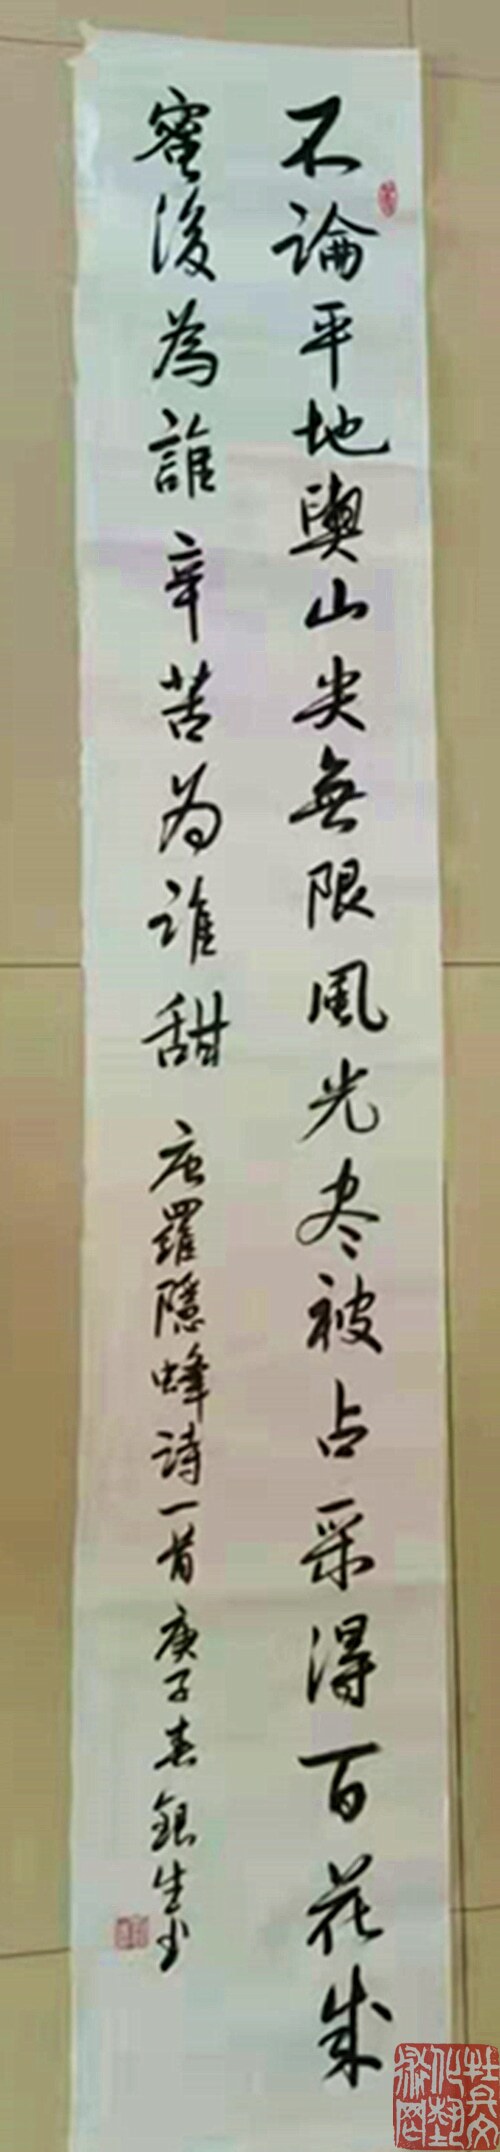 不論平地與山尖無限風光尽被占采得百花成
蜜後為誰辛苦为谁甜 唐羅隱蜂詩一首庚子春銀生书